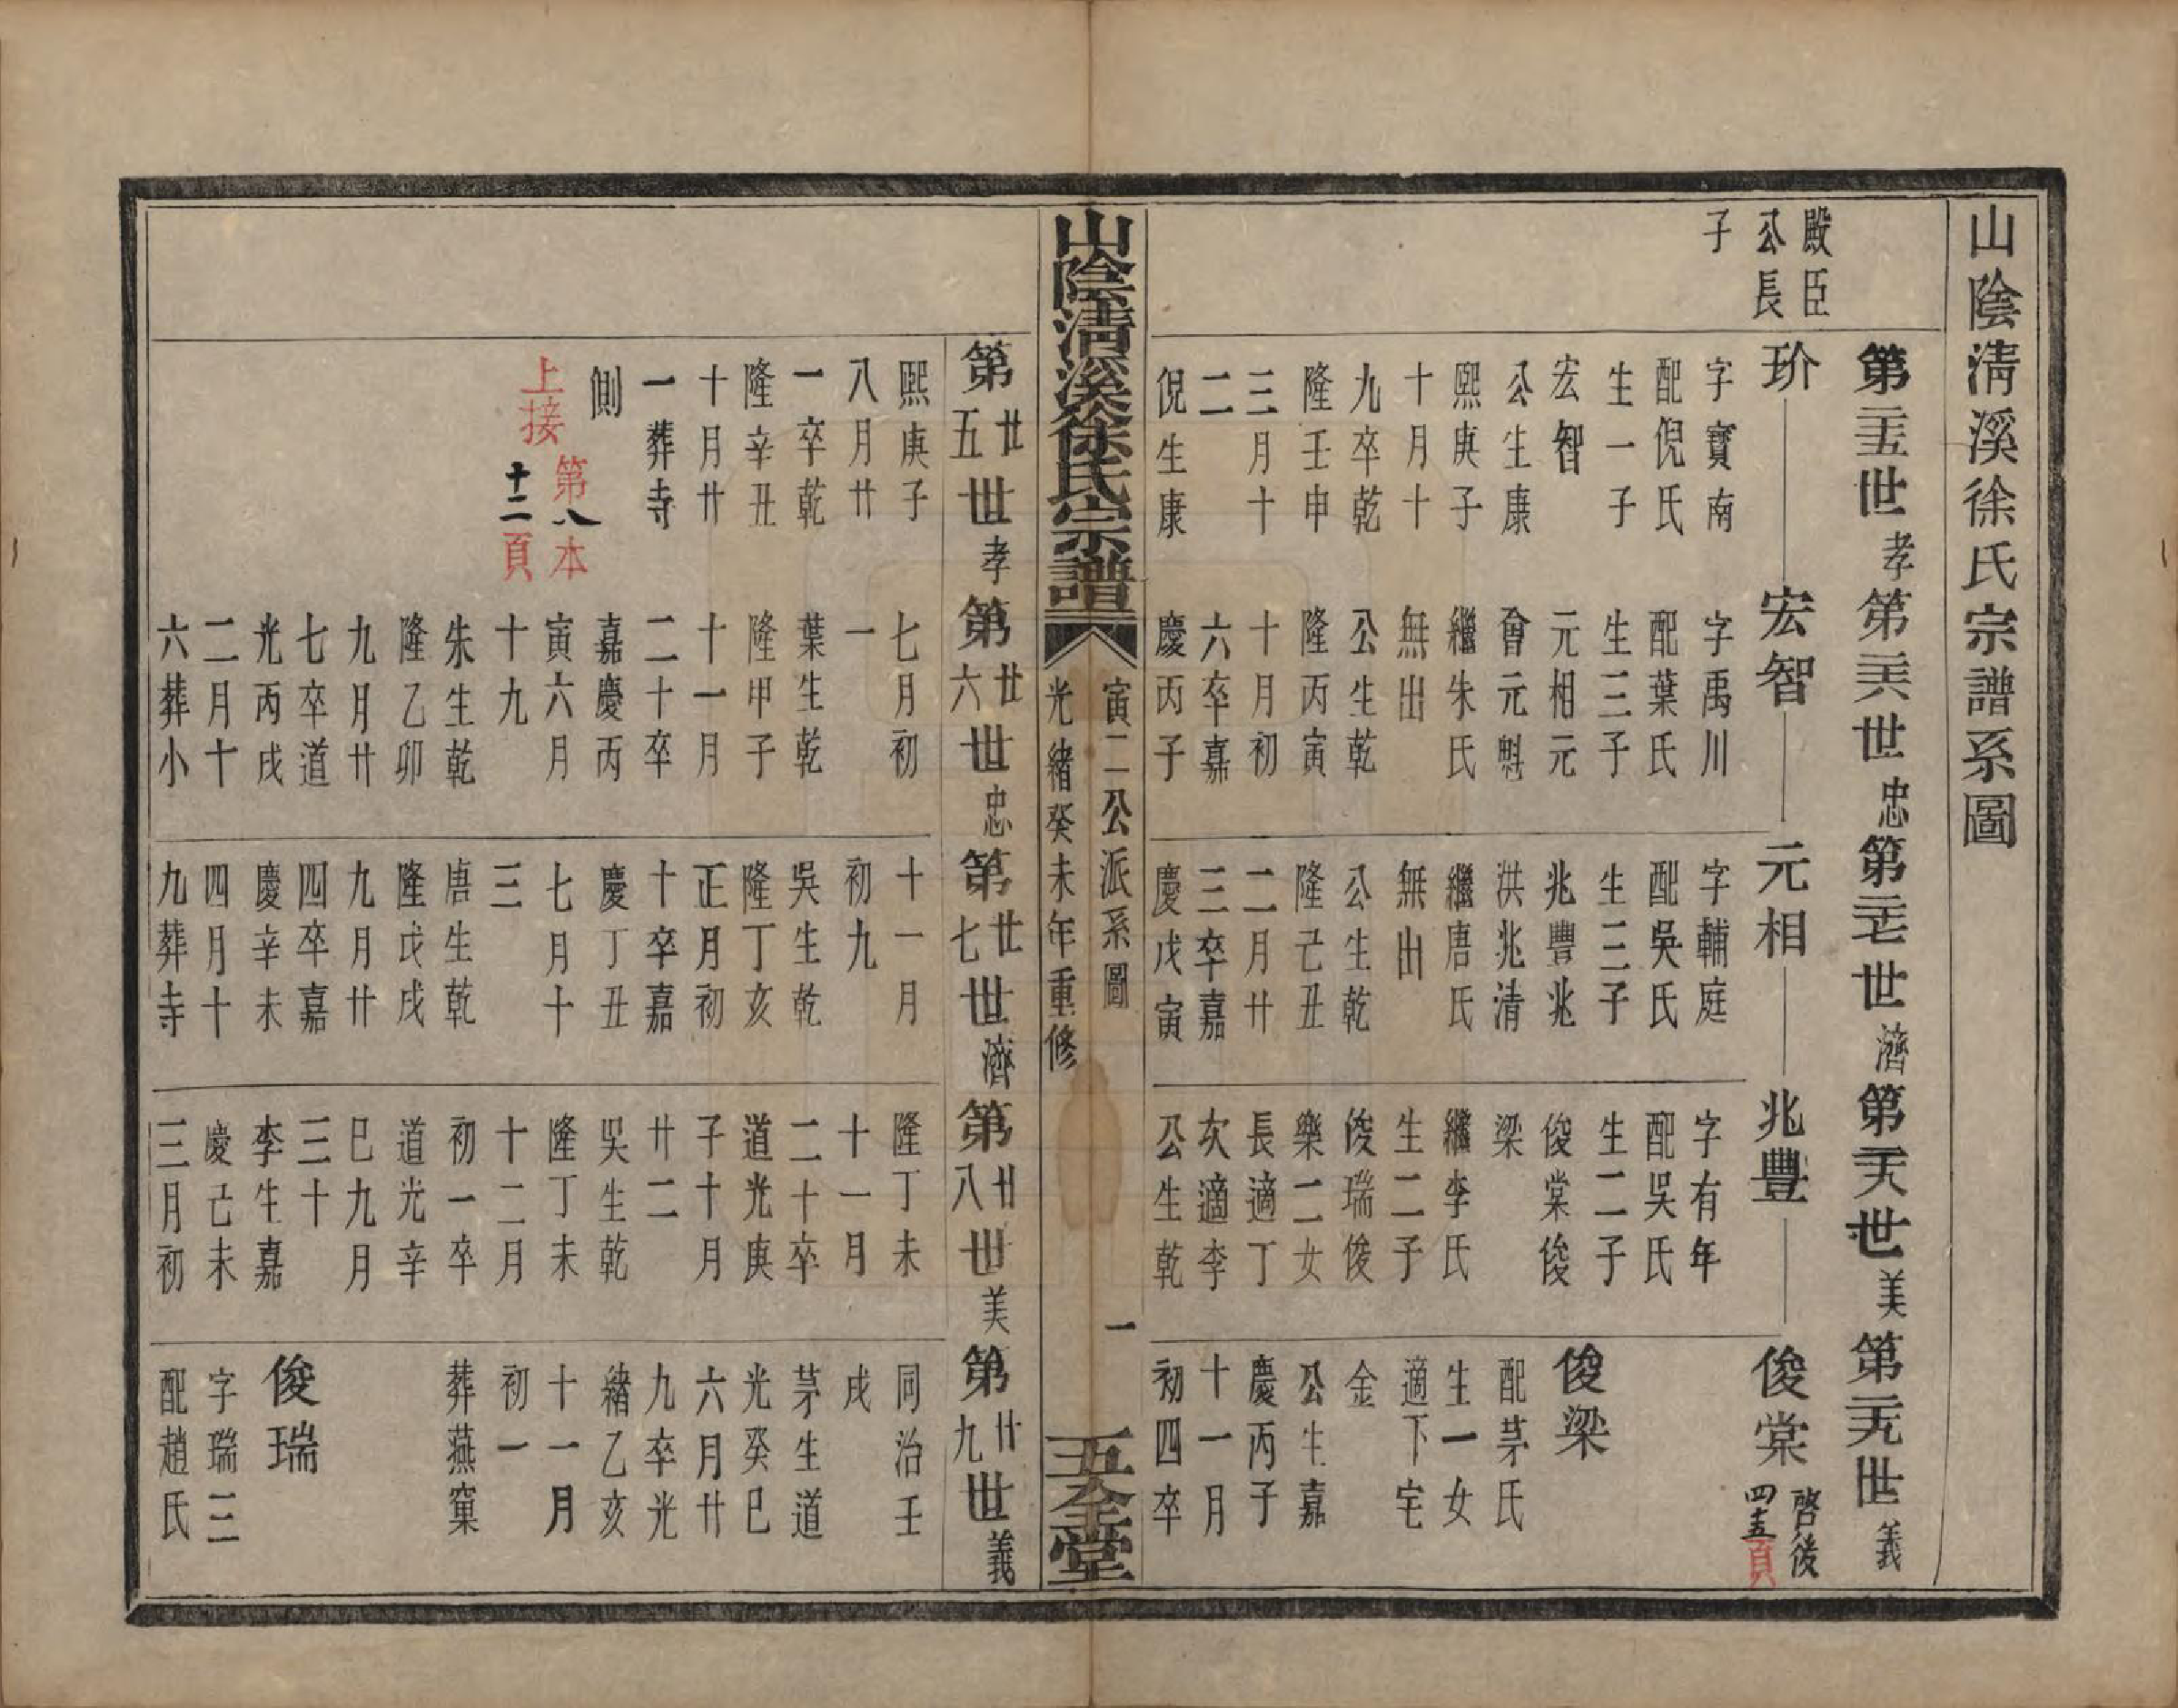 山陰淸溪徐氏宗譜系圖
第二十五世孝
第二十六世忠
第二十七世濟
第二十八世美
第二十九世義
殿臣
公長
子
玠
字寶南
配倪氏
生一子
宏智
公生康
熙庚子
十月十
九卒乾
隆壬申
三月十
二
倪生康
宏智
字禹川
配葉氏
生三子
元相元
會元魁
繼朱氏
無出
公生乾
隆丙寅
十月初
六卒嘉
慶丙子
元相
字輔庭
配吳氏
生三子
兆豐兆
洪兆清
繼唐氏
無出
公生乾
隆己丑
二月廿
三卒嘉
慶戊寅
兆豐
字有年
配吳氏
生二子
俊棠俊
梁
繼李氏
生二子
俊瑞俊
樂二女
長適丁
次適李
公生乾
俊棠
啓後
四十五頁
俊梁
配茅氏
生一女
適下宅
金
公生嘉
慶丙子
十一月
初四卒
山陰淸溪徐氏宗譜
寅二公派系圖
光緒癸未年重修
一
五全堂
第廿五世孝
第廿六世忠
第廿七世濟
第廿八世美
第廿九世義
熙庚子
八月廿
一卒乾
隆辛丑
十月廿
一葬寺
側
上接
第八本
十二頁
七月初
一
葉生乾
隆甲子
十一月
二十卒
嘉慶丙
寅六月
十九
朱生乾
隆乙卯
九月廿
七卒道
光丙戌
二月十
六葬小
十一月
初九
吳生乾
隆丁亥
正月初
十卒嘉
慶丁丑
七月十
三
唐生乾
隆戊戌
九月廿
四卒嘉
慶辛未
四月十
九葬寺
隆丁未
十一月
二十卒
道光庚
子十月
廿二
吳生乾
隆丁未
十二月
初一卒
道光辛
巳九月
三十
李生嘉
慶己未
三月初
同治壬
戌
茅生道
光癸巳
六月廿
九卒光
緒乙亥
十一月
初一
葬燕窠
俊瑞
字瑞三
配趙氏